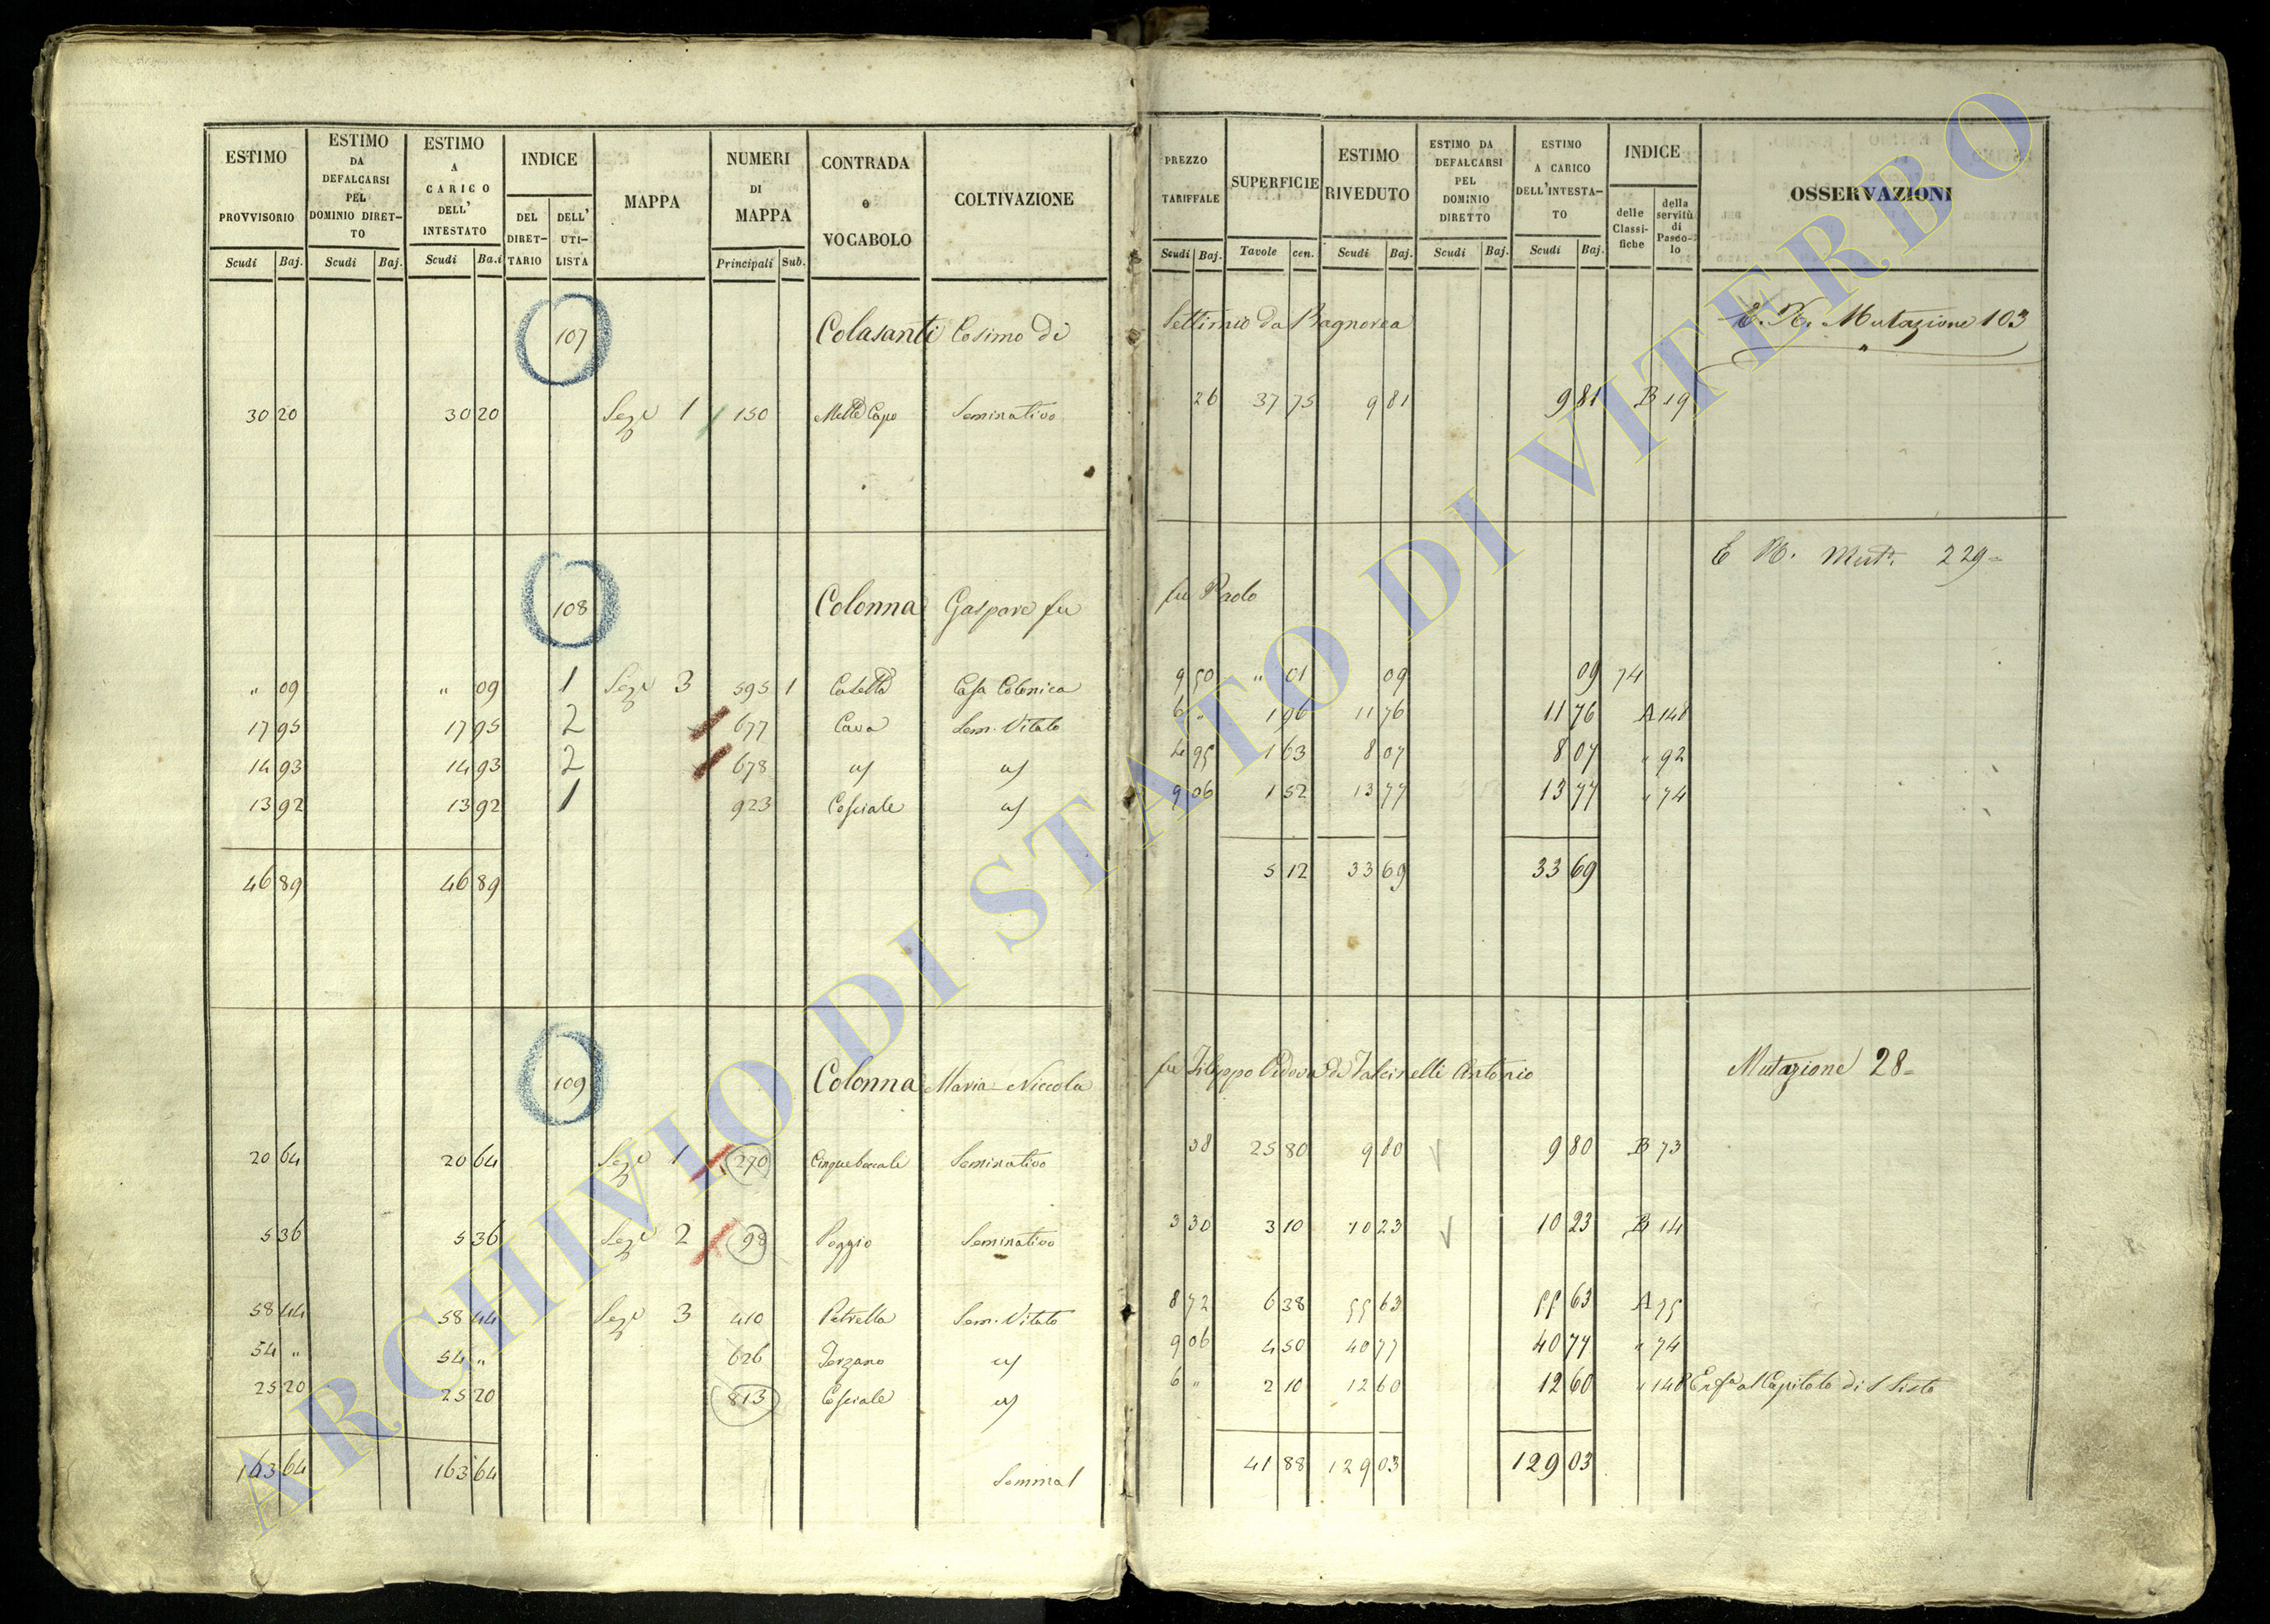 ESTIMO PROVVISORIO Scudi Baj.
ESTIMO DA DEFALCARSI PEL DOMINIO DIRET- TO Scudi Baj.
ESTIMO A CARICO DELL' INTESTATO Scudi Ba.i
INDICE DEL DIRET- TARIO DELL' UTI- LISTA
MAPPA
NUMERI DI MAPPA Principali Sub.
CONTRADA o VOCABOLO
COLTIVAZIONE
PREZZO TARIFFALE Scudi Baj.
SUPERFICIE Tavole cen.
ESTIMO RIVEDUTO Scudi Baj.
ESTIMO DA DEFALCARSI PEL DOMINIO DIRETTO Scudi Baj.
ESTIMO A CARICO DELL'INTESTA- TO Scudi Baj.
INDICE delle Classi- fiche della servitù di Pasco- lo
OSSERVAZIONI
107 Colasanti Cosimo di Settimio da Bagnorea Mutazione 103
30 20 30 20 Seze 1 150 Capo Seminativo 26 37 75 9 81 9 81 B 19
108 Colonna Gaspare fu fu Paolo E R. Mut. 229=
" 09 " 09 1 Seze 3 595 1 Casetta Casa Colonica 9 50 " 01 09 09 74
17 95 17 95 2 677 Cava Sem. Vitato 6 " 1 96 11 76 11 76 A 148
14 93 14 93 2 678 4 95 1 63 8 07 8 07 " 92
13 92 13 92 1 923 Cosciale 9 06 1 52 13 77 13 77 " 74
46 89 46 89 5 12 33 69 33 69
109 Colonna Maria Niccola fu Filippo Vedova di Falcinelli Antonio Mutazione 28=
20 64 20 64 Seze 1 270 Seminativo 38 25 80 9 80 9 80 B 73
5 36 5 36 Seze 2 98 Poggio Seminativo 3 30 3 10 10 23 10 23 B 14
58 44 58 44 Seze 3 410 Petrella Sem. Vitato 8 72 6 38 55 63 55 63 A 75
54 " 54 " 626 Terzano 9 06 4 50 40 77 40 77 " 74
25 20 25 20 813 Cosciale 6 " 2 10 12 60 12 60 " 148 al Capitolo di S Sisto
163 64 163 64 Somma 41 88 129 03 129 03
ARCHIVIO DI STATO DI VITERBO